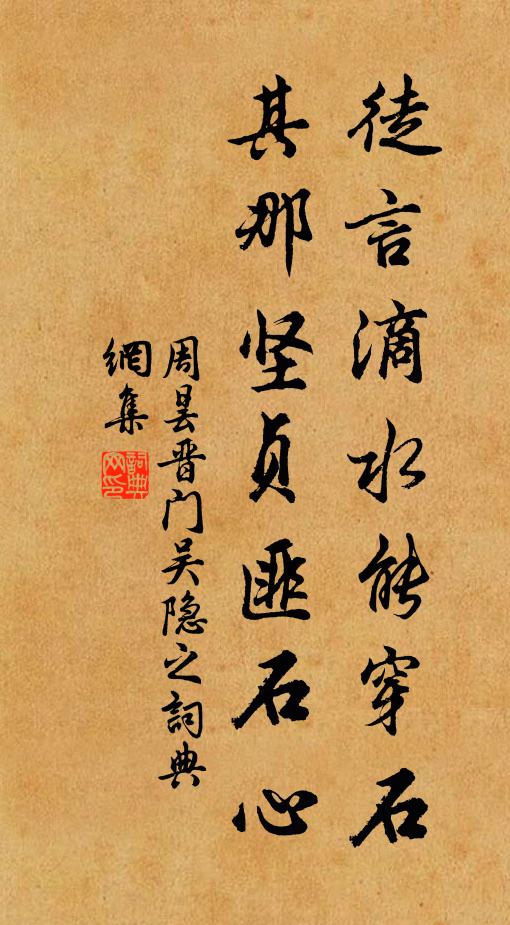 徒言滴水能穿石
其那坚贞匪石心
周昙晋门吴隐之詞典
網集
詞典
网印